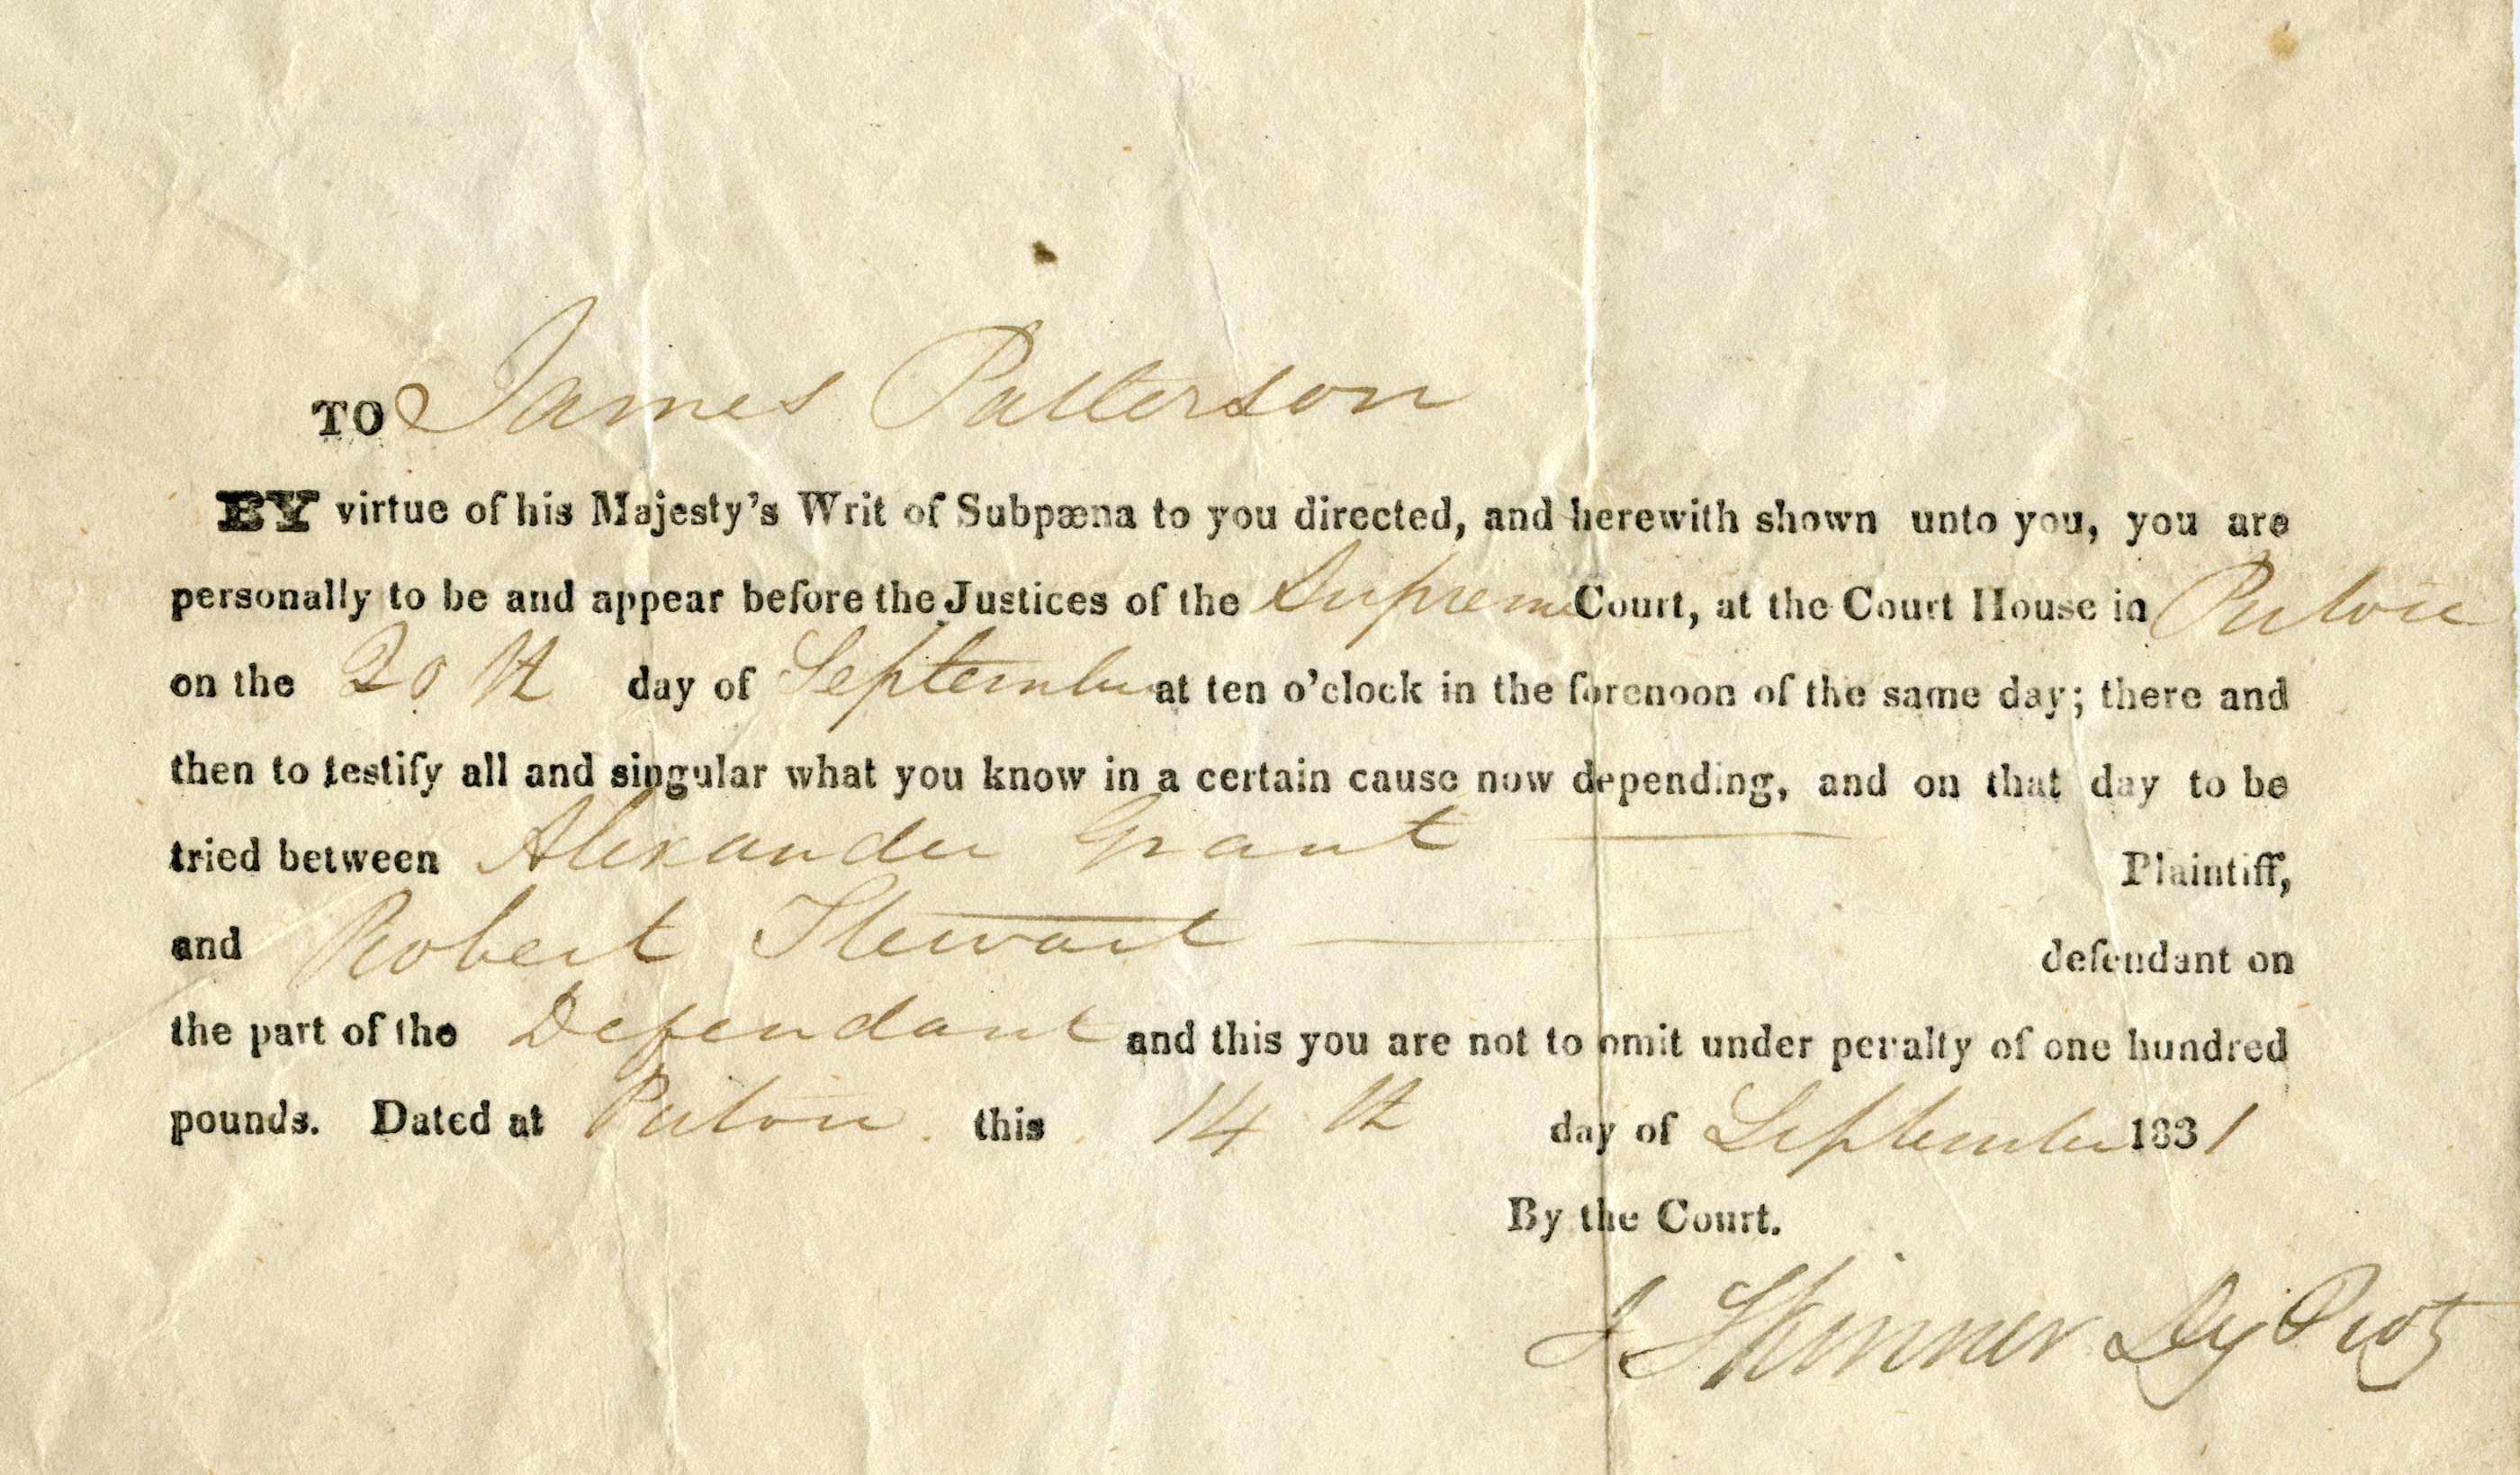 TO James Patterson
BY virtue of his Majesty's Writ of Subpæna to you directed, and herewith shown unto you, you are
personally to be and appear before the Justices of the Supreme Court, at the Court House in Pictou
on the 20th day of September at ten o'clock in the forenoon of the same day; there and
then to testify all and singular what you know in a certain cause now depending, and on that day to be
tried between Alexander Grant Plaintiff,
and Robert Stewart defendant on
the part of the Defendant and this you are not to omit under penalty of one hundred
pounds. Dated at Pictou this 14th day of September 1831
By the Court.
J Skinner Dy Proty